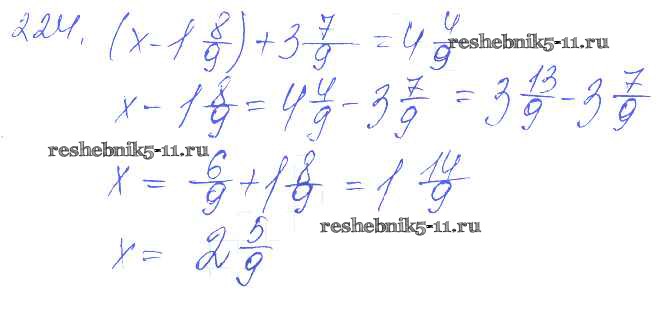 224. (x - 1 8/9) + 3 7/9 = 4 4/9
reshebnik5-11.ru
x - 1 8/9 = 4 4/9 - 3 7/9 = 3 13/9 - 3 7/9
reshebnik5-11.ru
x = 6/9 + 1 8/9 = 1 14/9
reshebnik5-11.ru
x = 2 5/9